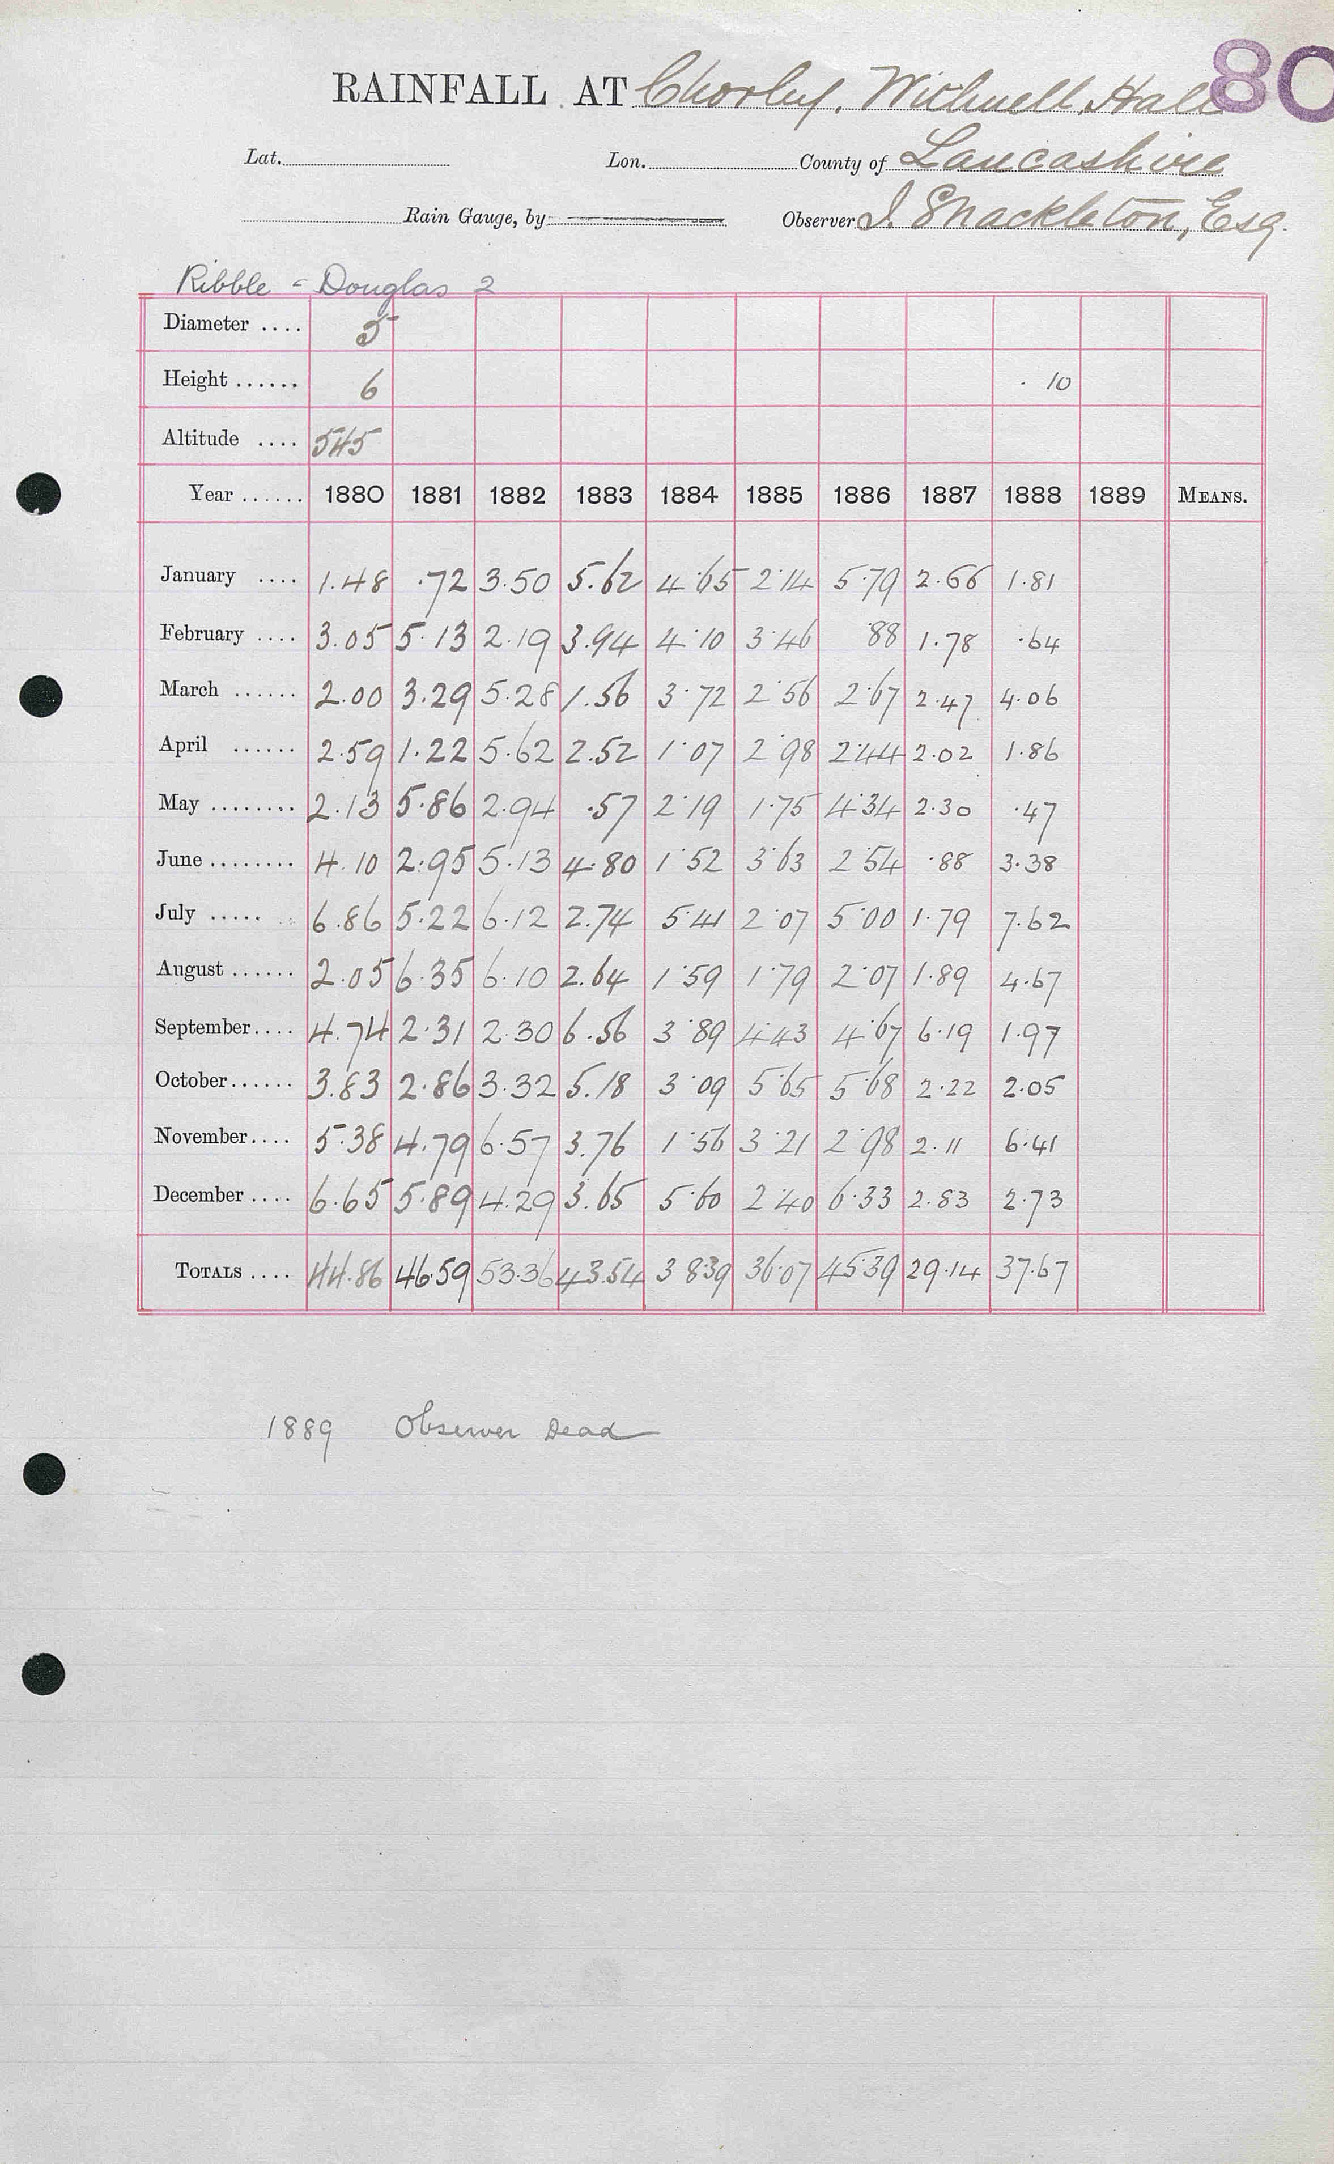 80
RAINFALL AT Chorley, Withnell Hall
Lat. Lon. County of Lancashire
Rain Gauge, by Observer J. Shackleton, Esq.
Ribble - Douglas 2
Diameter .... 5
Height ...... 6 . 10
Altitude .... 545
Year ...... 1880 1881 1882 1883 1884 1885 1886 1887 1888 1889 MEANS.
January .... 1.48 .72 3.50 5.62 4.65 2.14 5.79 2.66 1.81
February .... 3.05 5.13 2.19 3.94 4.10 3.46 .88 1.78 .64
March ...... 2.00 3.29 5.28 1.56 3.72 2.56 2.67 2.47 4.06
April ...... 2.59 1.22 5.62 2.52 1.07 2.98 2.44 2.02 1.86
May ........ 2.13 5.86 2.94 .57 2.19 1.75 4.34 2.30 .47
June ........ 4.10 2.95 5.13 4.80 1.52 3.63 2.54 .88 3.38
July ..... 6.86 5.22 6.12 2.74 5.41 2.07 5.00 1.79 7.62
August ...... 2.05 6.35 6.10 2.64 1.59 1.79 2.07 1.89 4.67
September.... 4.74 2.31 2.30 6.56 3.89 4.43 4.67 6.19 1.97
October...... 3.83 2.86 3.32 5.18 3.09 5.65 5.68 2.22 2.05
November.... 5.38 4.79 6.57 3.76 1.56 3.21 2.98 2.11 6.41
December .... 6.65 5.89 4.29 3.65 5.60 2.40 6.33 2.83 2.73
TOTALS .... 44.86 46.59 53.36 43.54 38.39 36.07 45.39 29.14 37.67
1889 Observer Dead